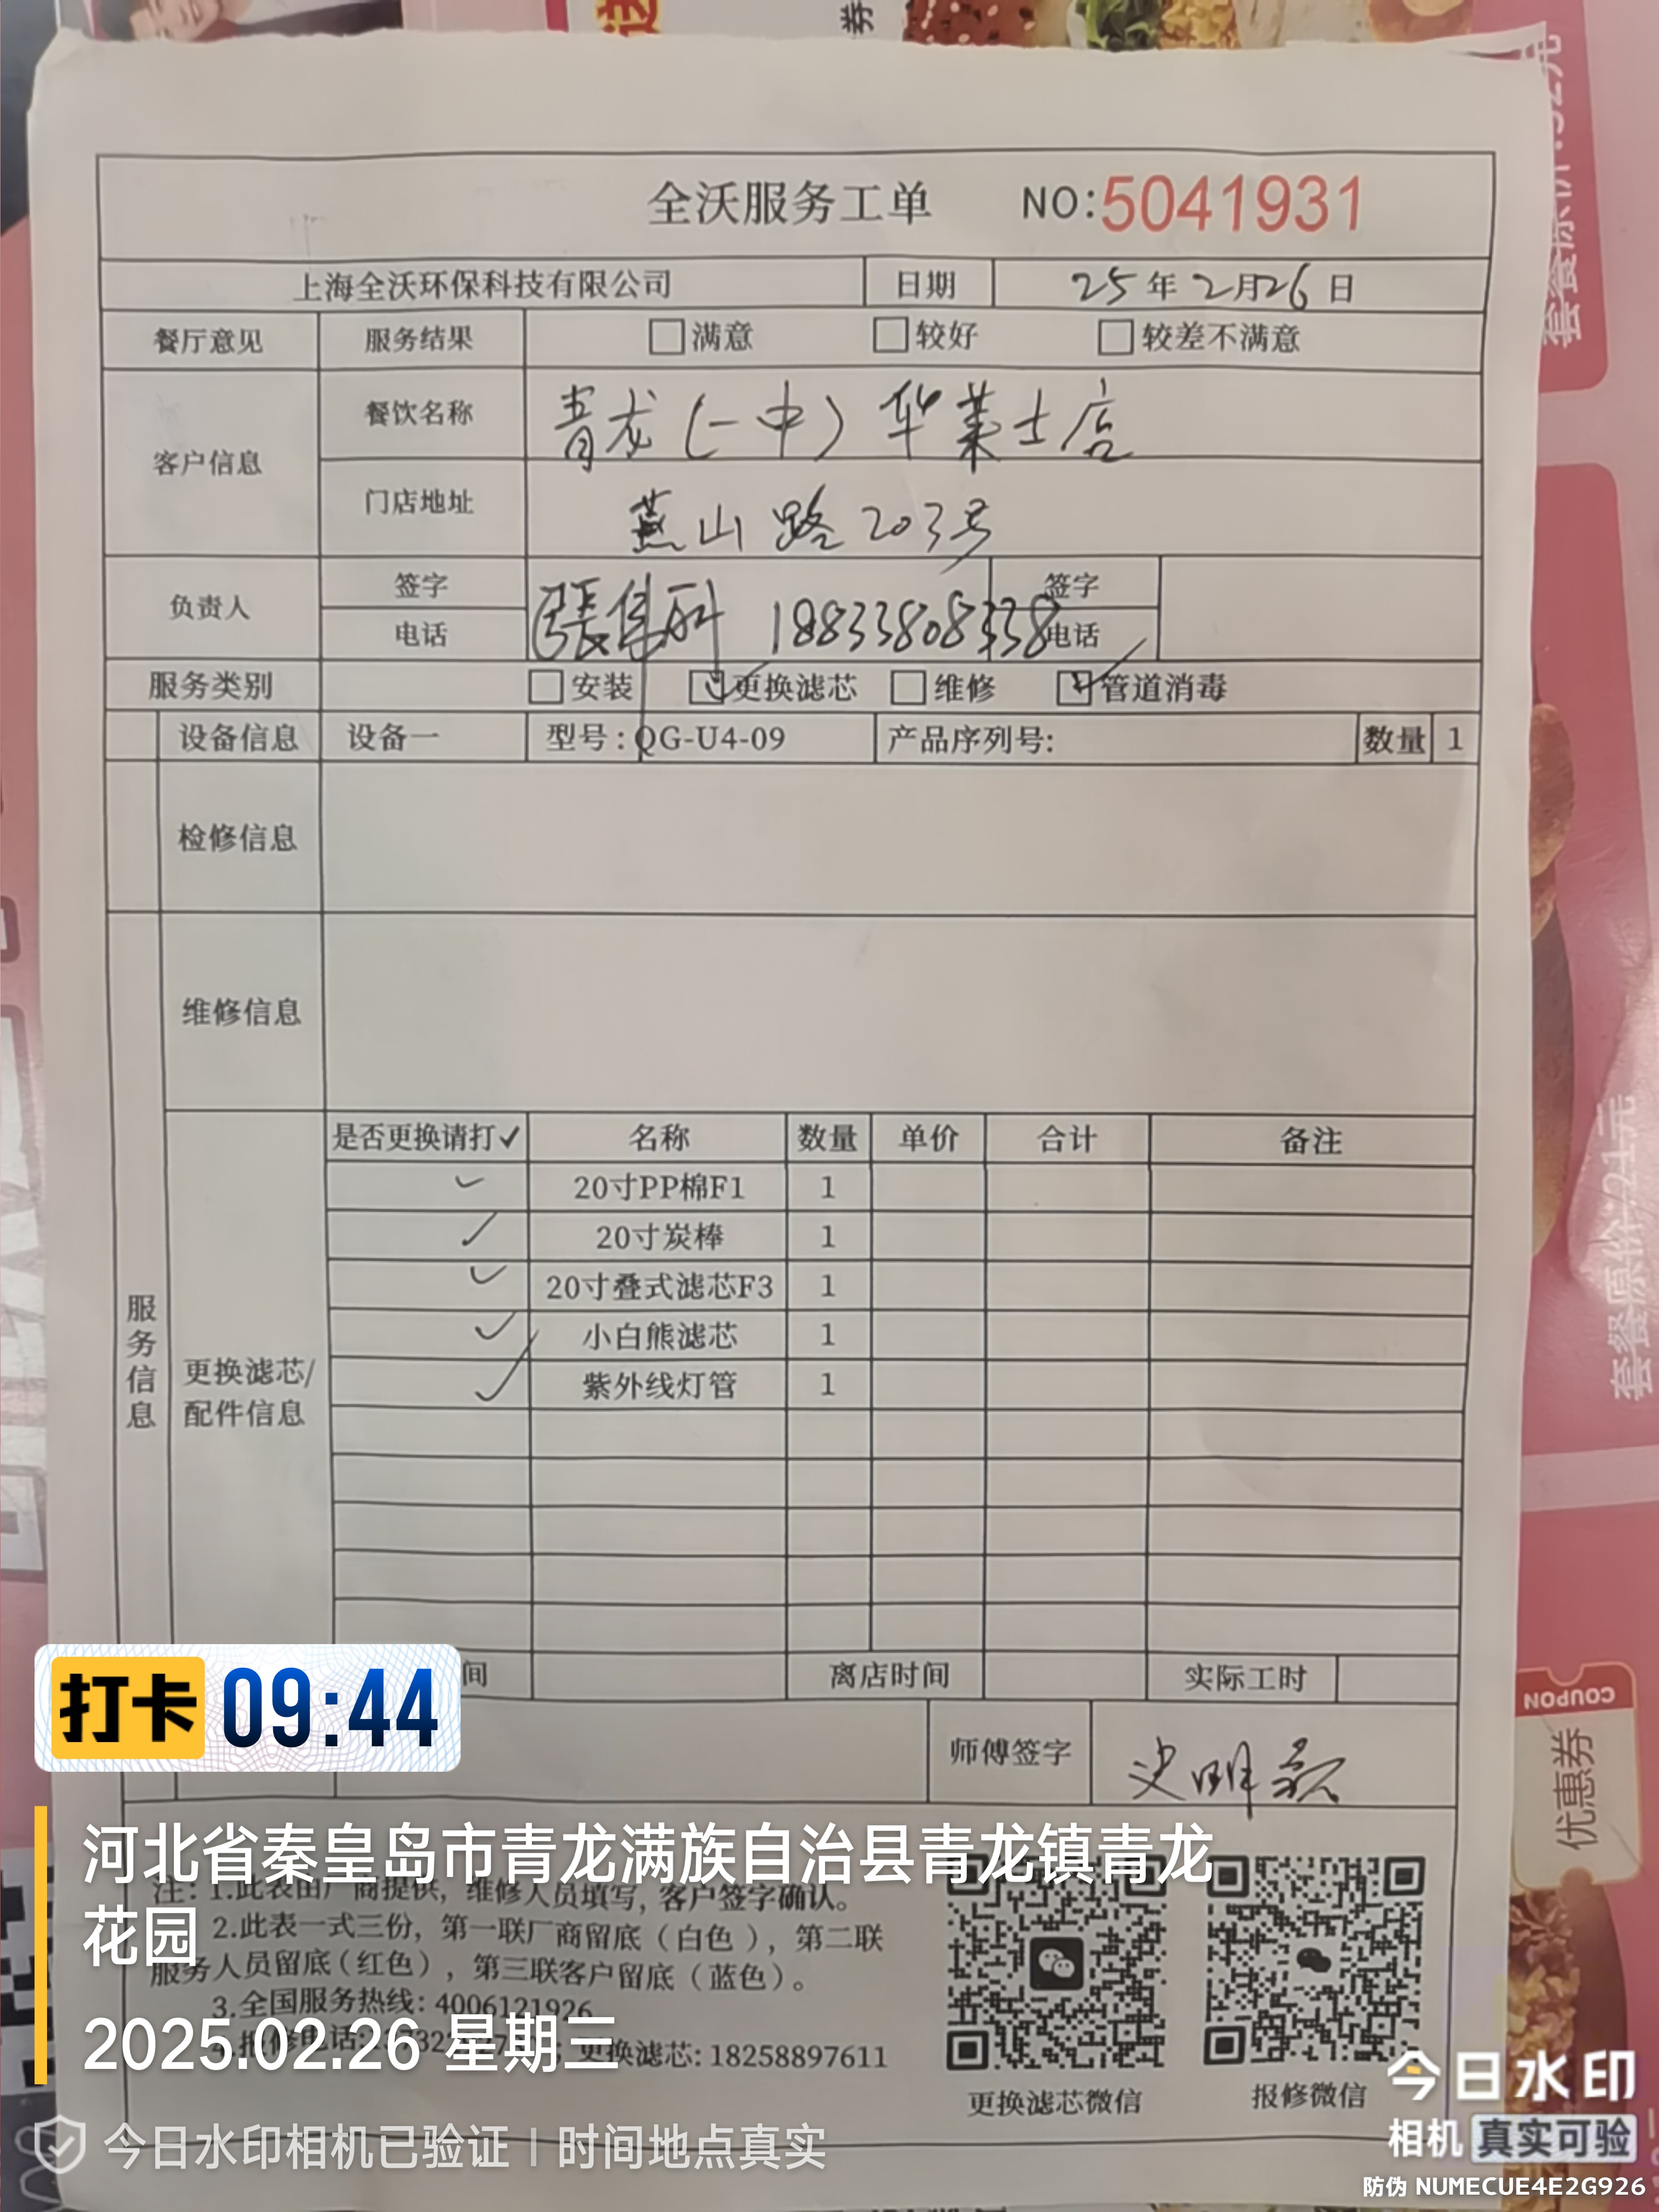 全沃服务工单 NO:5041931
上海全沃环保科技有限公司 日期 25年2月26日
餐厅意见 服务结果 □满意 □较好 □较差不满意
客户信息 餐饮名称 青龙(一中)华莱士店
门店地址 燕山路203号
负责人 签字 签字
电话 18833808338 电话
服务类别 □安装 ☑更换滤芯 □维修 ☑管道消毒
设备信息 设备一 型号:QG-U4-09 产品序列号: 数量 1
检修信息
维修信息
服务信息
更换滤芯/
配件信息
是否更换请打✓ 名称 数量 单价 合计 备注
✓ 20寸PP棉F1 1
✓ 20寸炭棒 1
✓ 20寸叠式滤芯F3 1
✓ 小白熊滤芯 1
✓ 紫外线灯管 1
间 离店时间 实际工时
师傅签字 史明
注: 1.此表由厂商提供, 维修人员填写, 客户签字确认。
2.此表一式三份, 第一联厂商留底(白色), 第二联
服务人员留底(红色), 第三联客户留底(蓝色)。
3.全国服务热线: 4006121926
报修电话: 更换滤芯: 18258897611
更换滤芯微信 报修微信
打卡 09:44
河北省秦皇岛市青龙满族自治县青龙镇青龙
花园
2025.02.26 星期三
今日水印相机已验证 | 时间地点真实
今日水印
相机 真实可验
防伪 NUMECUE4E2G926
COUPON
优惠券
套餐原价:21元
券